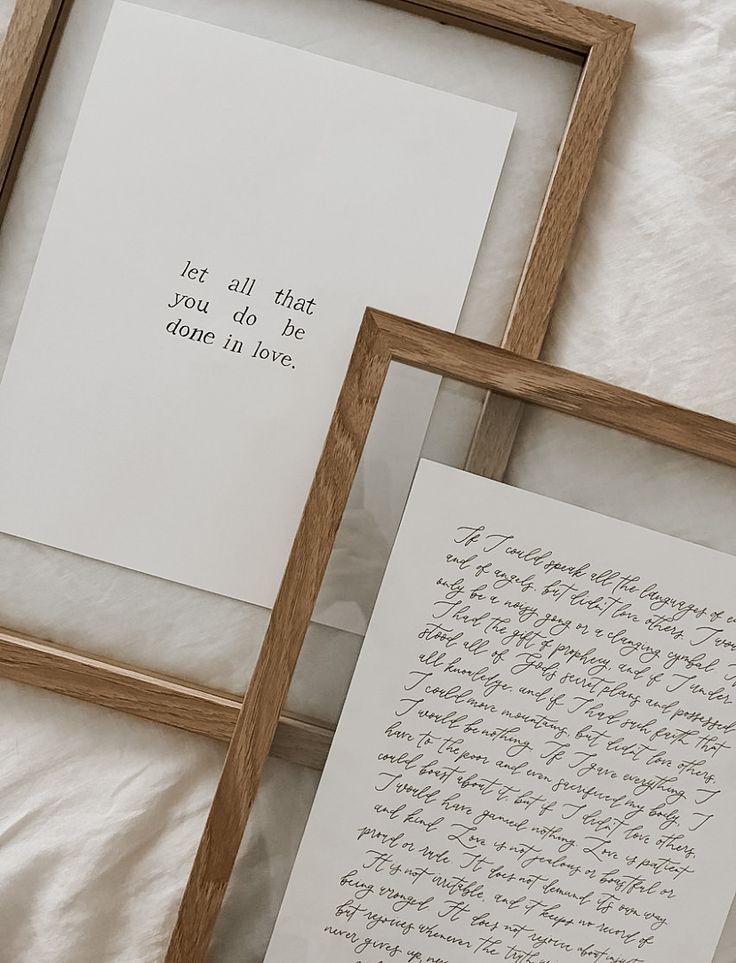 let all that
you do be
done in love.
If I could speak all the languages of
and of angels, but didn't love others, I would
only be a noisy gong or a clanging cymbal. If
I had the gift of prophecy, and if I under
stood all of God's secret plans and possessed
all knowledge, and if I had such faith that
I could move mountains, but didn't love others,
I would be nothing. If I gave everything I
have to the poor and even sacrificed my body, I
could boast about it, but if I didn't love others,
I would have gained nothing. Love is patient
and kind. Love is not jealous or boastful or
proud or rude. It does not demand its own way.
It is not irritable, and it keeps no record of
being wronged. It does not rejoice about
but rejoices whenever the truth
never gives up,